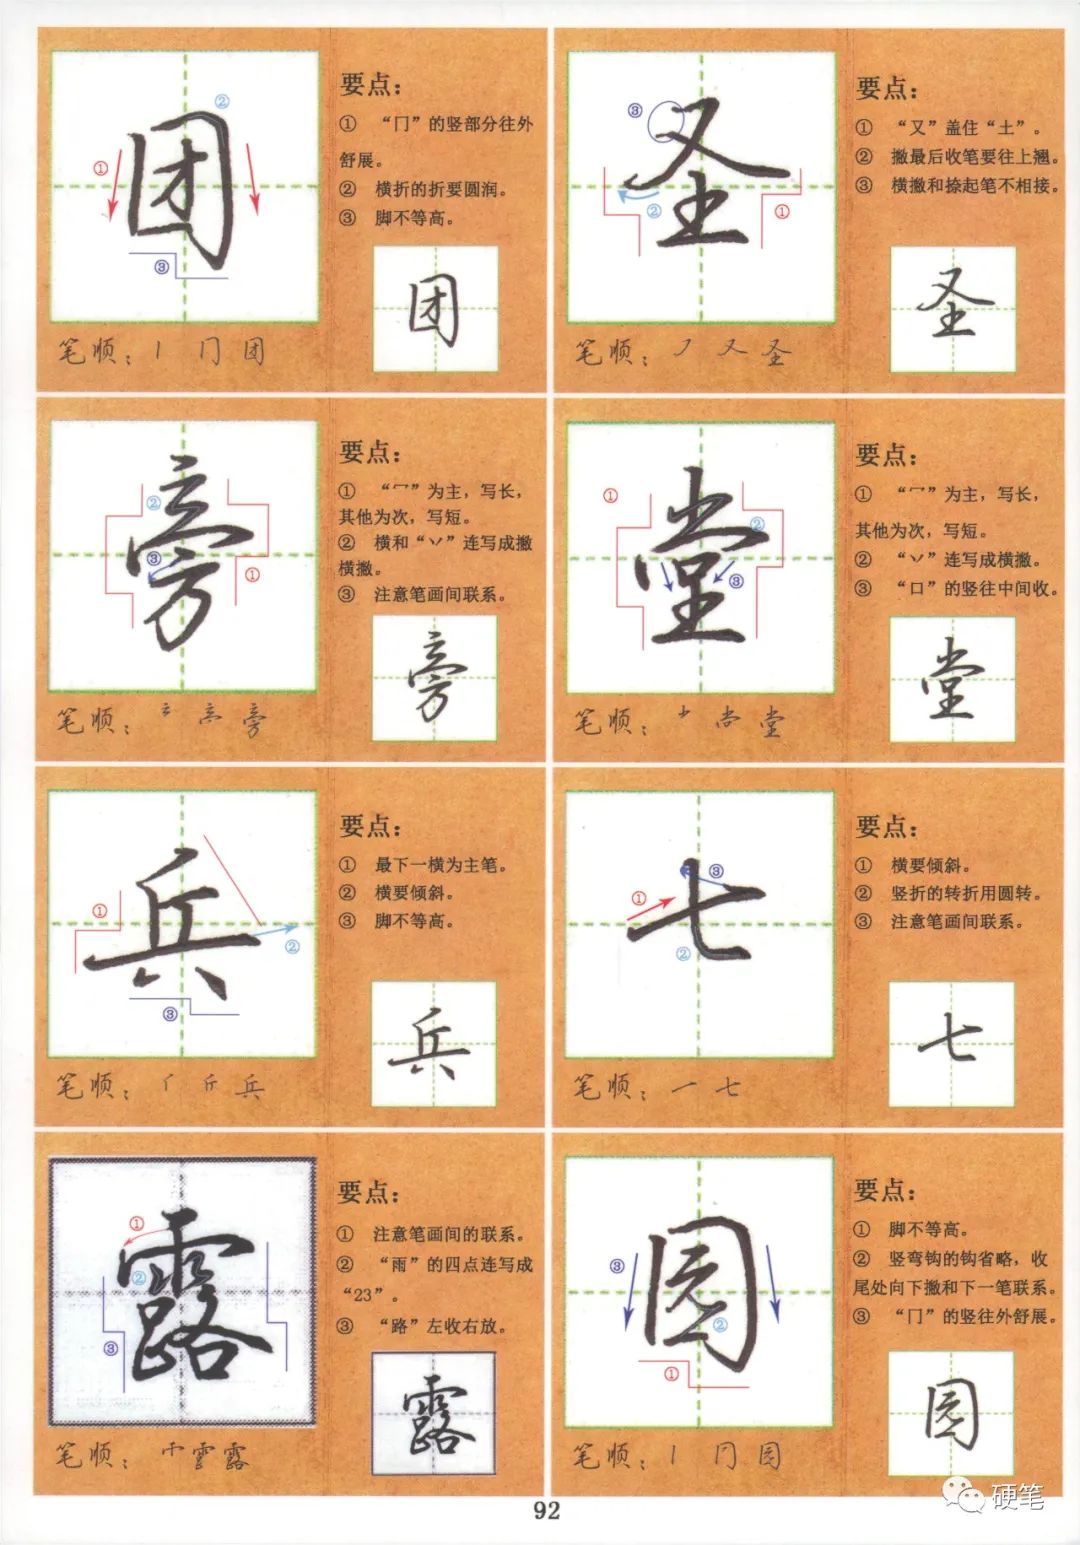 团
要点：
① “冂”的竖部分往外
舒展。
② 横折的折要圆润。
③ 脚不等高。
团
笔顺：丨 冂 团
圣
要点：
① “又”盖住“土”。
② 撇最后收笔要往上翘。
③ 横撇和捺起笔不相接。
圣
笔顺：㇇ 又 圣
旁
要点：
① “冖”为主，写长，
其他为次，写短。
② 横和“丷”连写成撇
横撇。
③ 注意笔画间联系。
旁
笔顺：旁
堂
要点：
① “冖”为主，写长，
其他为次，写短。
② “丷”连写成横撇。
③ “口”的竖往中间收。
堂
笔顺：尚 堂
兵
要点：
① 最下一横为主笔。
② 横要倾斜。
③ 脚不等高。
兵
笔顺：亻 斤 兵
七
要点：
① 横要倾斜。
② 竖折的转折用圆转。
③ 注意笔画间联系。
七
笔顺：一 七
露
要点：
① 注意笔画间的联系。
② “雨”的四点连写成
“23”。
③ “路”左收右放。
露
笔顺：露
园
要点：
① 脚不等高。
② 竖弯钩的钩省略，收
尾处向下撇和下一笔联系。
③ “冂”的竖往外舒展。
园
笔顺：丨 冂 园
92
硬笔